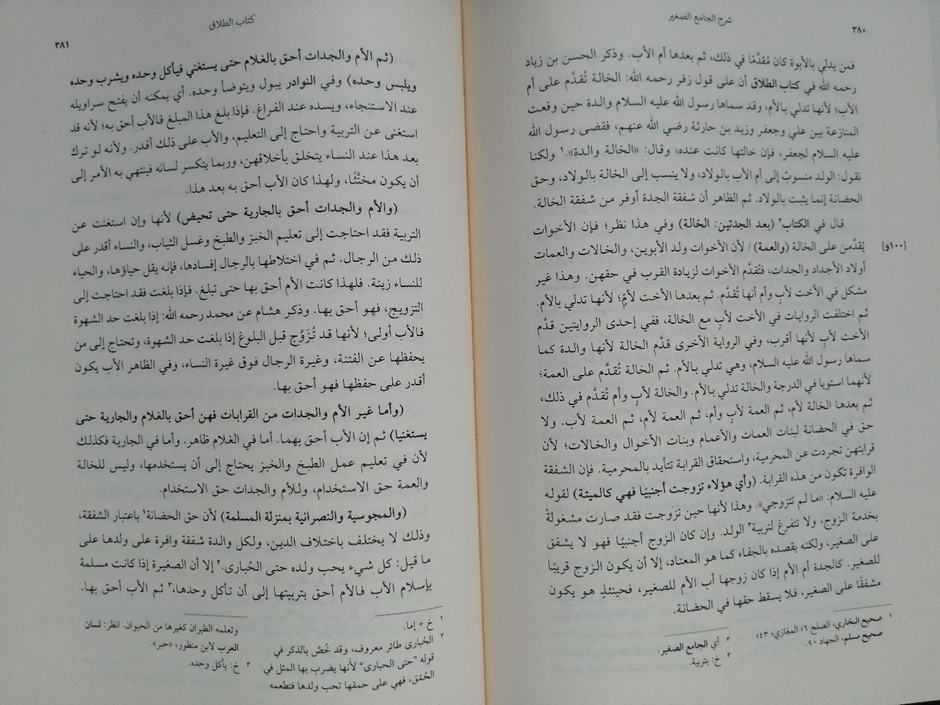 ٣٨٠
شرح الجامع الصغير
فمن يدلي بالأبوة كان مُقدَّمًا في ذلك، ثم بعدها أم الأب. وذكر الحسن بن زياد
رحمه الله في كتاب الطلاق أن على قول زفر رحمه الله: الخالة تُقدَّم على أم
الأب؛ لأنها تدلي بالأم، وقد سماها رسول الله عليه السلام والدة حين وقعت
المنازعة بين علي وجعفر وزيد بن حارثة رضي الله عنهم، فقضى رسول الله
عليه السلام لجعفر، فإن خالتها كانت عنده، وقال: «الخالة والدة».١ ولكنا
نقول: الولد منسوبٌ إلى أم الأب بالولاد، ولا ينسب إلى الخالة بالولاد، وحق
الحضانة إنما يثبت بالولاد. ثم الظاهر أن شفقة الجدة أوفر من شفقة الخالة.
قال في الكتاب٢ (بعد الجدتين: الخالة) وفي هذا نظر؛ فإن الأخوات
[١٠٠و]
يُقدَّمن على الخالة (والعمة)/ لأن الأخوات ولد الأبوين، والخالات والعمات
أولاد الأجداد والجدات، فتُقدَّم الأخوات لزيادة القرب في حقهن. وهذا غير
مشكل في الأخت لأبٍ وأم أنها تُقدَّم. ثم بعدها الأخت لأمٍّ؛ لأنها تدلي بالأم.
ثم اختلفت الروايات في الأخت لأبٍ مع الخالة، ففي إحدى الروايتين قدَّم
الأخت لأبٍ لأنها أقرب، وفي الرواية الأخرى قدَّم الخالة لأنها والدة كما
سماها رسول الله عليه السلام، وهي تدلي بالأم. ثم الخالة تُقدَّم على العمة؛
لأنهما استويا في الدرجة والخالة تدلي بالأم. والخالة لأبٍ وأم تُقدَّم في ذلك،
ثم بعدها الخالة لأم، ثم العمة لأب وأم، ثم العمة لأم، ثم العمة لأب. ولا
حق في الحضانة لبنات العمات والأعمام وبنات الأخوال والخالات؛ لأن
قرابتهن تجردت عن المحرمية، واستحقاق القرابة تتأيد بالمحرمية. فإن الشفقة
الوافرة تكون من هذه القرابة. (وأي هؤلاء تزوجت أجنبيًا فهي كالميتة) لقوله
عليه السلام: «ما لم تتزوجي». وهذا لأنها حين تزوجت فقد صارت مشغولةً
بخدمة الزوج، ولا تتفرغ لتربية٣ الولد. وإن كان الزوج أجنبيًا فهو لا يشفق
على الصغير، ولكنه يقصده بالجفاء كما هو المعتاد، إلا أن يكون الزوج قريبًا
للصغير. كالجدة أم الأم إذا كان زوجها أب الأم للصغير، فحينئذٍ هو يكون
مشفقًا على الصغير، فلا يسقط حقها في الحضانة.
١ صحيح البخاري، الصلح ٦؛ المغازي، ٤٣؛
صحيح مسلم، الجهاد ٩٠.
٢ أي الجامع الصغير.
٣ خ: بتربية.
كتاب الطلاق
٣٨١
(ثم الأم والجدات أحق بالغلام حتى يستغني فيأكل وحده ويشرب وحده
ويلبس وحده) وفي النوادر يبول ويتوضأ وحده. أي يمكنه أن يفتح سراويله
عند الاستنجاء، ويسده عند الفراغ. فإذا بلغ هذا المبلغ فالأب أحق به؛ لأنه قد
استغنى عن التربية واحتاج إلى التعليم، والأب على ذلك أقدر. ولأنه لو ترك
بعد هذا عند النساء يتخلق بأخلاقهن، وربما يتكسر لسانه فينتهي به الأمر إلى
أن يكون مخنَّثًا، ولهذا كان الأب أحق به بعد هذا.
(والأم والجدات أحق بالجارية حتى تحيض) لأنها وإن استغنت عن
التربية فقد احتاجت إلى تعليم الخبز والطبخ وغسل الثياب، والنساء أقدر على
ذلك من الرجال. ثم في اختلاطها بالرجال إفسادها، فإنه يقل حياؤها، والحياء
للنساء زينة. فلهذا كانت الأم أحق بها حتى تبلغ. فإذا بلغت فقد احتاجت إلى
التزويج، فهو أحق بها. وذكر هشام عن محمد رحمه الله: إذا بلغت حد الشهوة
فالأب أولى؛ لأنها قد تُزَوَّج قبل البلوغ إذا بلغت حد الشهوة، وتحتاج إلى من
يحفظها عن الفتنة، وغيرة الرجال فوق غيرة النساء، وفي الظاهر الأب يكون
أقدر على حفظها فهو أحق بها.
(وأما غير الأم والجدات من القرابات فهن أحق بالغلام والجارية حتى
يستغنيا) ثم إن الأب أحق بهما. أما في الغلام ظاهر. وأما في الجارية فكذلك
لأن في تعليم عمل الطبخ والخبز يحتاج إلى أن يستخدمها، وليس للخالة
والعمة حق الاستخدام، وللأم والجدات حق الاستخدام.
(والمجوسية والنصرانية بمنزلة المسلمة) لأن حق الحضانة١ باعتبار الشفقة،
وذلك لا يختلف باختلاف الدين، ولكل والدة شفقة وافرة على ولدها على
ما قيل: كل شيء يحب ولده حتى الحُبارى.٢ إلا أن الصغيرة إذا كانت مسلمة
بإسلام الأب فالأم أحق بتربيتها إلى أن تأكل وحدها،٣ ثم الأب أحق بها.
١ خ + إما.
٢ الحُبارى طائر معروف، وقد خُصَّ بالذكر في
قوله "حتى الحبارى" لأنها يضرب بها المثل في
الحُمق، فهي على حمقها تحب ولدها فتطعمه
وتعلمه الطيران كغيرها من الحيوان. انظر: لسان
العرب لابن منظور، «حبر».
٣ خ: يأكل وحده.